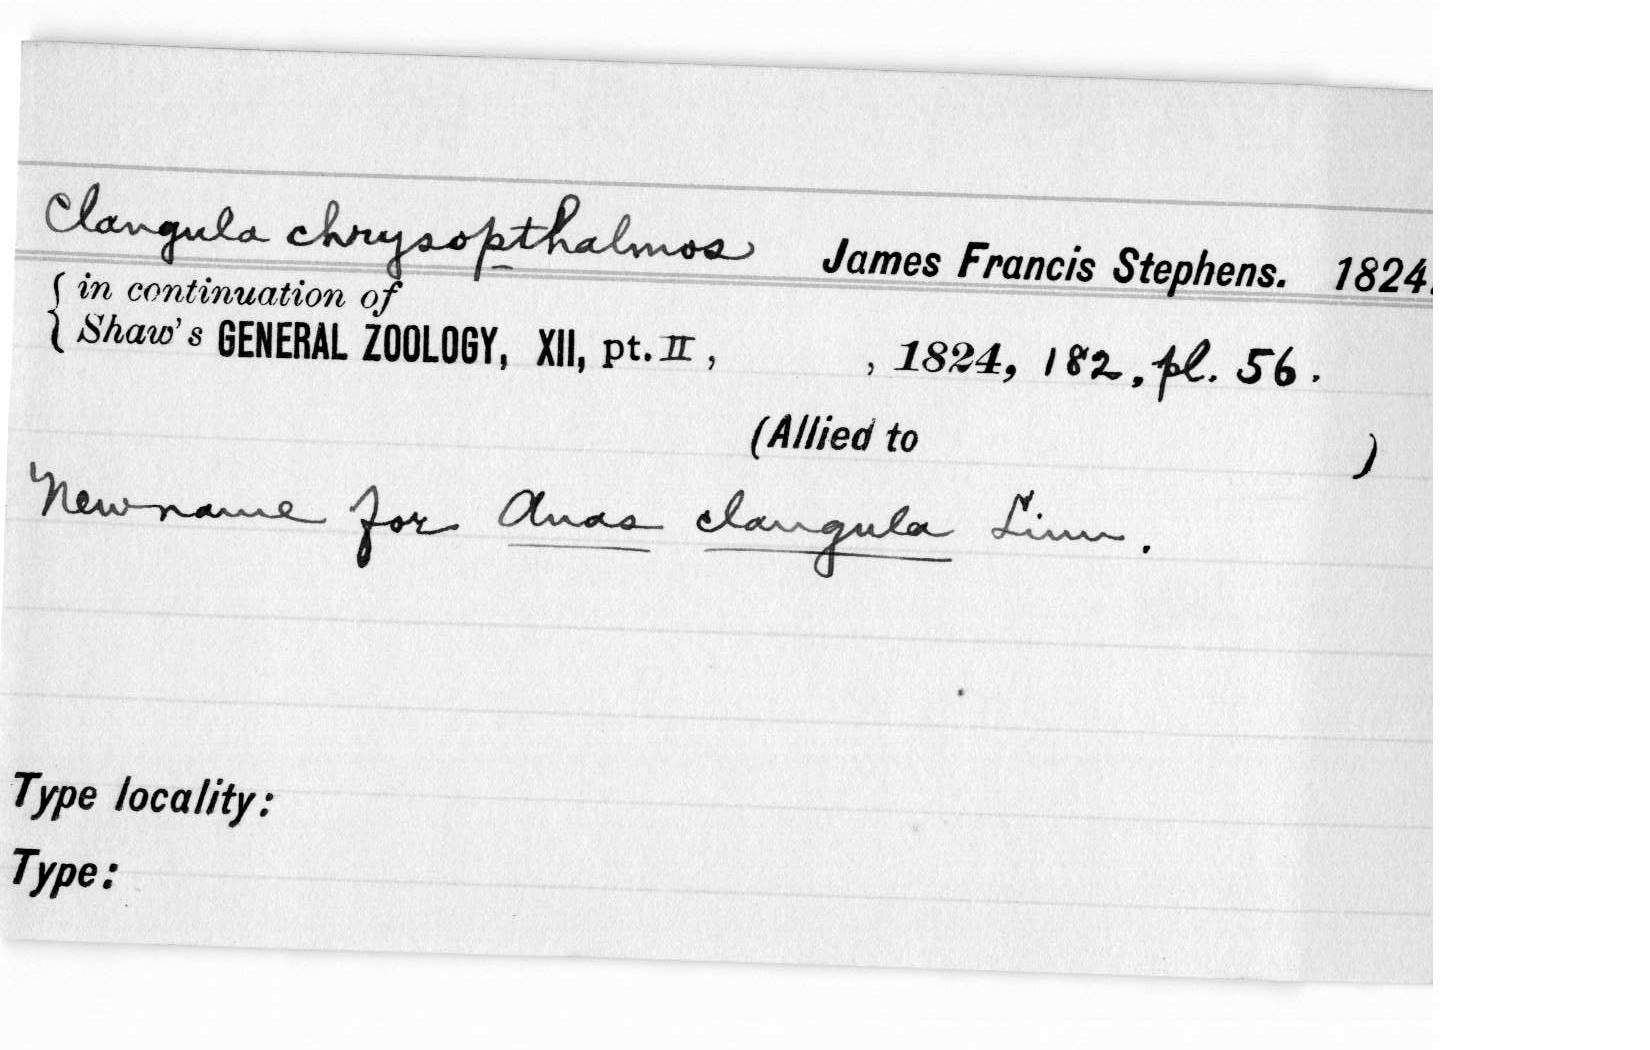 Clangula chrysopthalmos James Francis Stephens. 1824.
{ in continuation of
Shaw's GENERAL ZOOLOGY, XII, pt. II, , 1824, 182, pl. 56.
(Allied to )
New name for Anas clangula Linn.
Type locality:
Type: